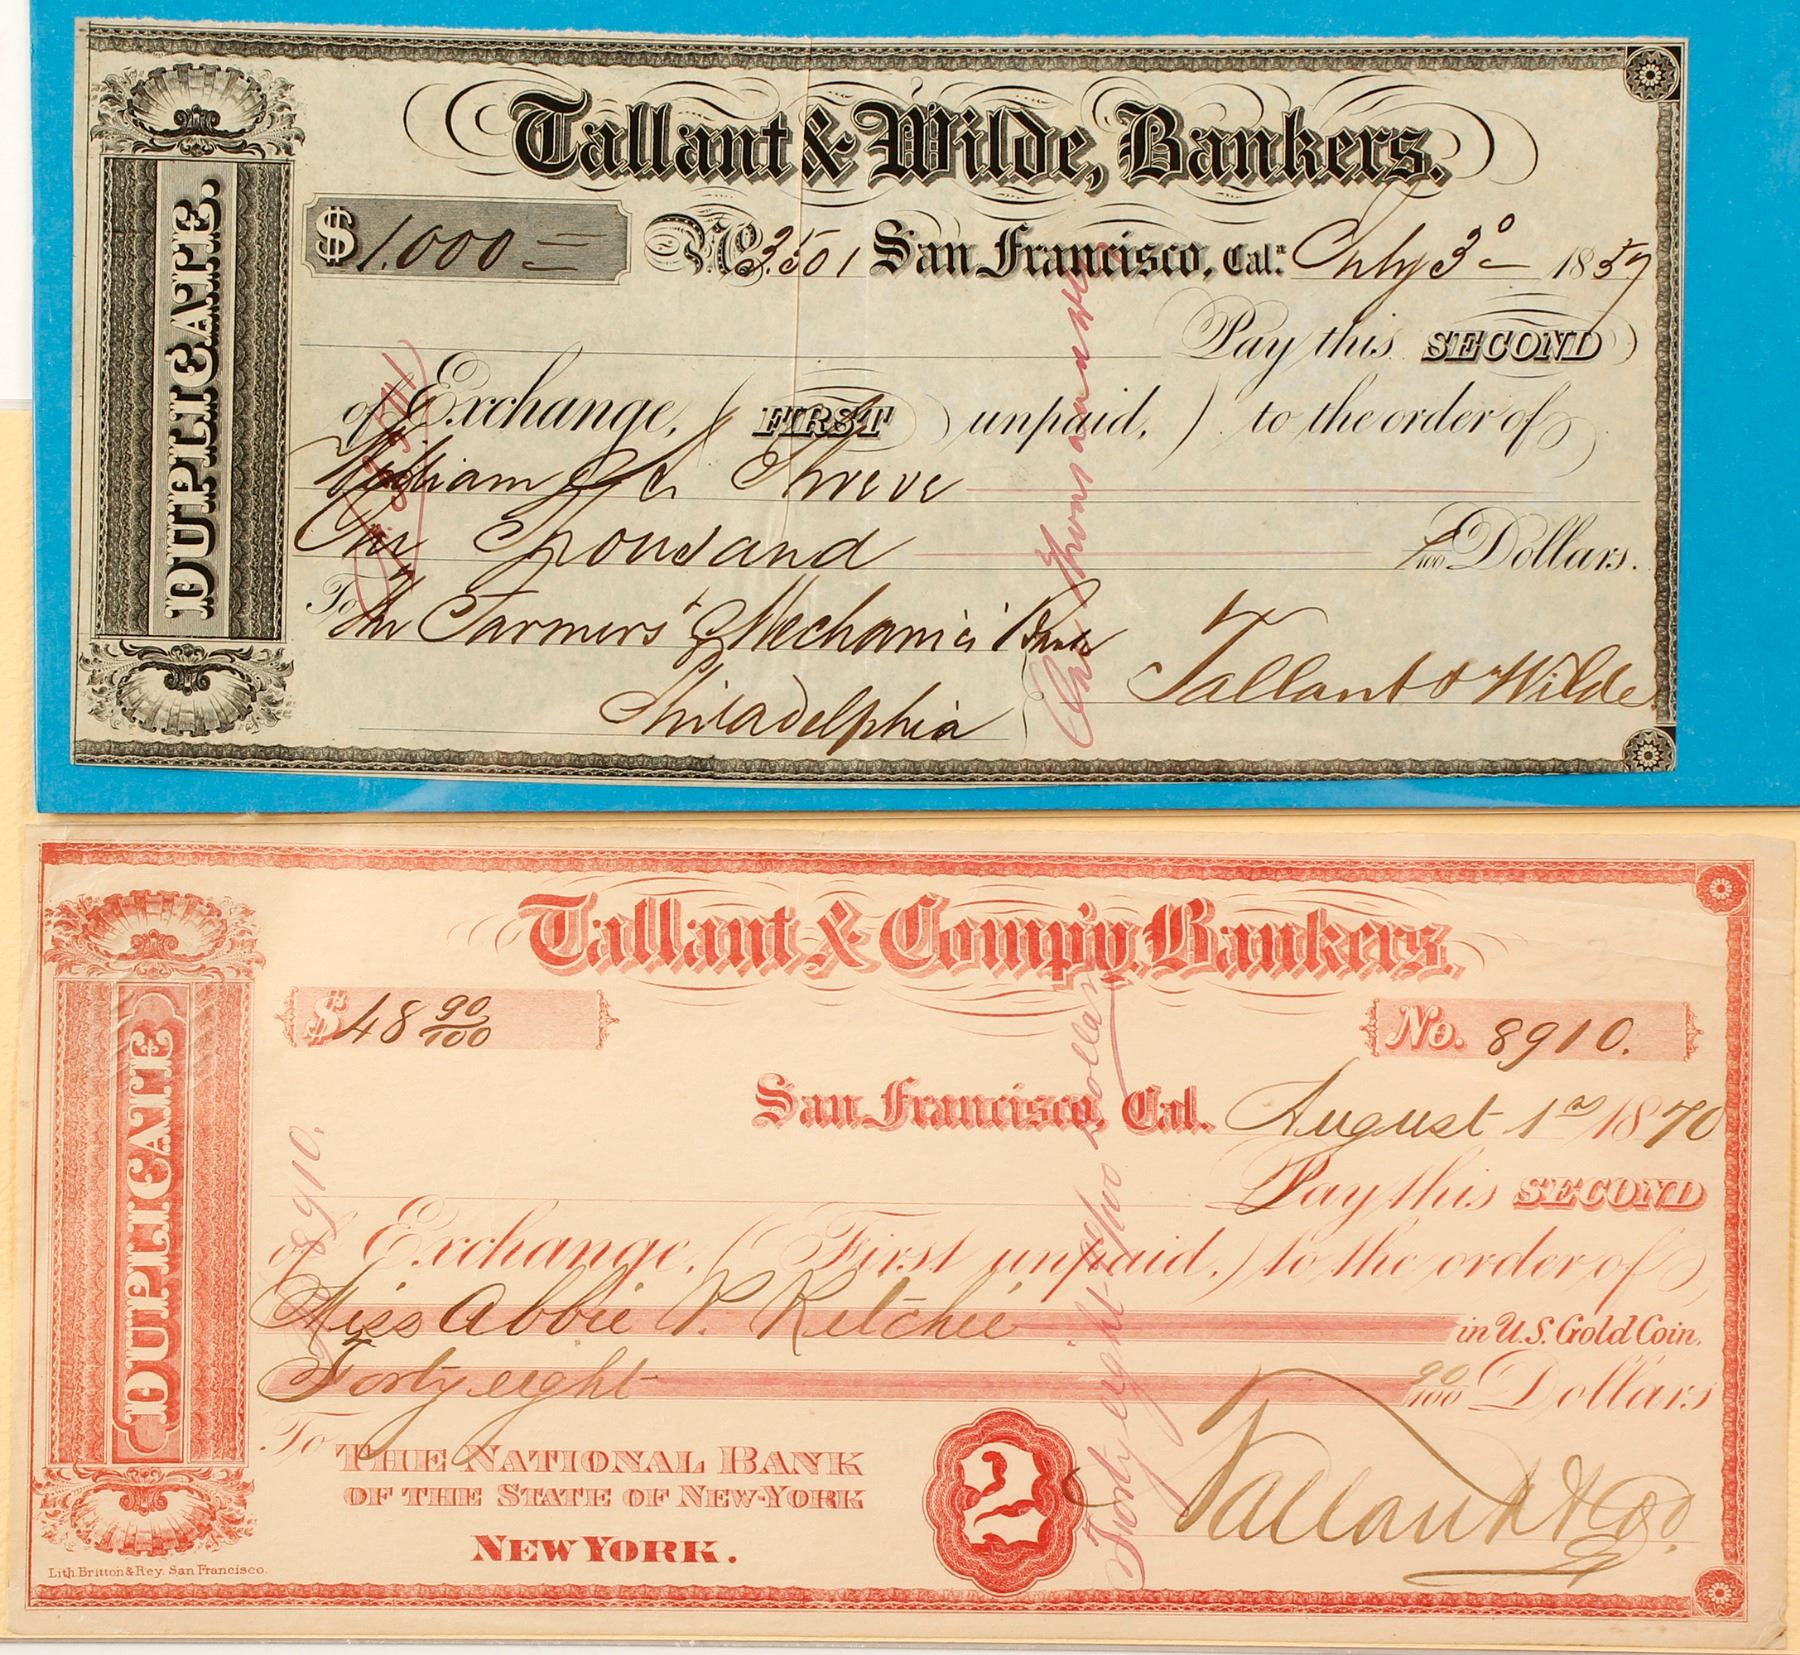 Tallant & Wilde, Bankers.
DUPLICATE.
$1,000 = No. 3501 San Francisco, Cal. July 3º 1857
Pay this SECOND
of Exchange, ( FIRST unpaid, ) to the order of
William Shreve
One Thousand /100 Dollars.
To The Farmers' & Mechanics' Bank
Philadelphia
Tallant & Wilde
One Thousand
Tallant & Comp'y. Bankers.
DUPLICATE
$48 90/100 No. 8910.
San Francisco, Cal. August 1st 1870
Pay this SECOND
of Exchange, (First unpaid,) to the order of
Miss Abbie P. Ritchie in U.S. Gold Coin,
Forty eight 90/100 Dollars
To THE NATIONAL BANK
OF THE STATE OF NEW-YORK
NEW YORK.
2
Tallant & Co.
8910.
Forty eight dollars
Lith. Britton & Rey. San Francisco.